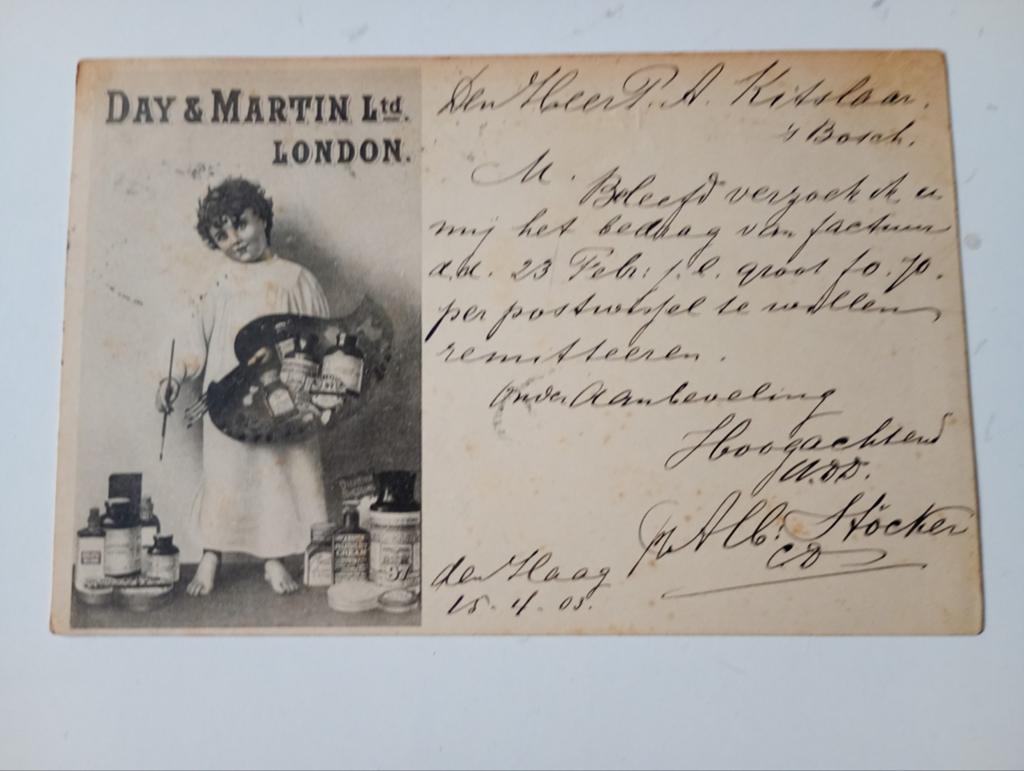 DAY & MARTIN Ltd.
LONDON.
Den Heer P. A. Kitslaar.
's Bosch.
M.
Beleefd verzoek ik u
mij het bedrag van factuur
d.d. 23 Febr: j.l. groot f0.70.
per postwissel te willen
remitteeren.
Onder Aanbeveling
Hoogachtend
U.D.D.
Alb: Stöcker
den Haag
15.4.05.
CREAM
97